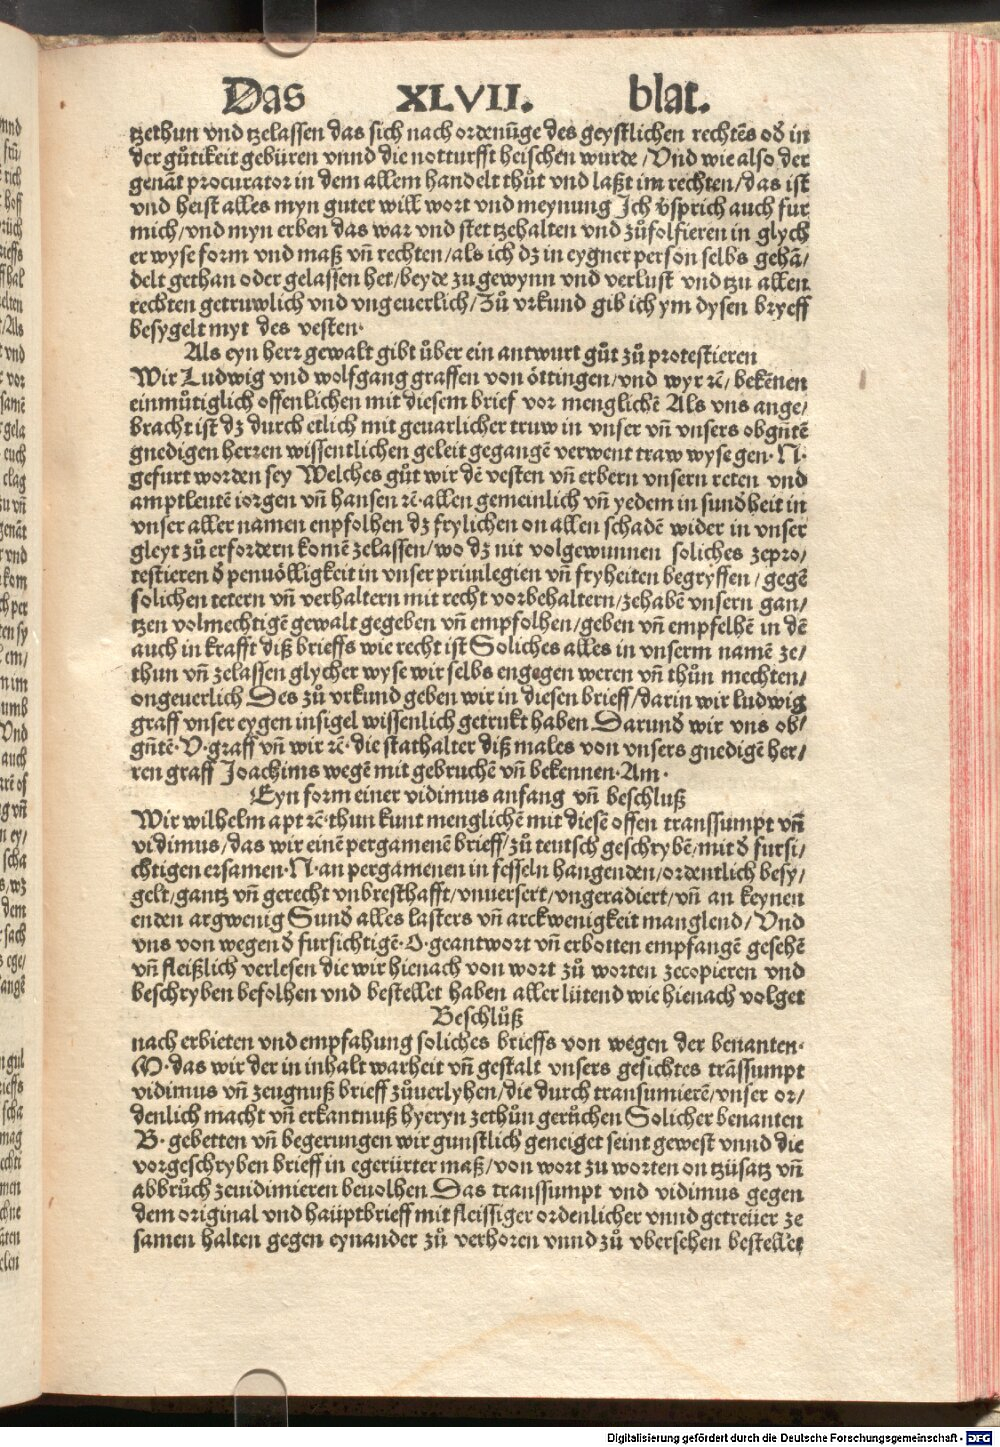 Das XLVII. blat.
tzethun vnd tzelassen das sich nach ordenūge des geystlichen rechtēs od̄ in
der gůtikeit gebüren vnnd die notturfft heischen wurde/Vnd wie also der
genāt procurator in dem allem handelt thůt vnd laßt im rechten/das ist
vnd heist alles myn guter will wort vnd meynung Ich v̄sprich auch fur
mich/vnd myn erben das war vnd stet tzehalten vnd zůfolfieren in glych
er wyse form vnd maß vn̄ rechten/als ich dz in eygner person selbs gehā/
delt gethan oder gelassen het/beyde zu gewynn vnd verlust vnd tzu allen
rechten getruwlich vnd vngeuerlich/Zů vrkund gib ich ym dysen bryeff
besygelt myt des vesten·
Als eyn herr gewalt gibt über ein antwurt gůt zů protestieren
Wir Ludwig vnd wolfgang graffen von öttingen/vnd wyr rc̄/bekēnen
einmůtiglich offenlichen mit diesem brief vor menglichē Als vns ange/
bracht ist dz durch etlich mit geuarlicher truw in vnser vn̄ vnsers obgn̄tē
gnedigen herren wissentlichen geleit gegangē verwent traw wyse gen·N·
gefurt worden sey Welches gůt wir dē vesten vn̄ erbern vnsern reten vnd
amptleutē iorgen vn̄ hansen rc̄·allen gemeinlich vn̄ yedem in sund̄heit in
vnser aller namen enpfolhen dz frylichen on allen schadē wider in vnser
gleyt zů erfordern komē zelassen/wo dz nit volgewunnen soliches zepro/
testieren d̄ penuölligkeit in vnser priuilegien vn̄ fryheiten begryffen/gegē
solichen tetern vn̄ verhaltern mit recht vorbehaltern/zehabē vnsern gan/
tzen volmechtigē gewalt gegeben vn̄ empfolhen/geben vn̄ empfelhē in dē
auch in krafft diß brieffs wie recht ist Soliches alles in vnserm namē ze/
thun vn̄ zelassen glycher wyse wir selbs engegen weren vn̄ thůn mechten/
ongeuerlich Des zů vrkund geben wir in diesen brieff/darin wir ludwig
graff vnser eygen insigel wissenlich getrukt haben Darund̄ wir vns ob/
gn̄tē·V·graff vn̄ wir rc̄·die stathalter diß males von vnsers gnedigē her/
ren graff Joachims wegē mit gebruchē vn̄ bekennen·Am·
Eyn form einer vidimus anfang vn̄ beschluß
Wir wilhelm apt rc̄·thun kunt menglichē mit diesē offen transsumpt vn̄
vidimus/das wir einē pergamenē brieff/zů teutsch geschrybē/mit d̄ fursi/
chtigen ersamen·N·an pergamenen in fesseln hangenden/ordentlich besy/
gelt/gantz vn̄ gerecht vnbresthafft/vnuersert/vngeradiert/vn̄ an keynen
enden argwenig Sund̄ alles lasters vn̄ arckwenigkeit manglend/Vnd
vns von wegen d̄ fursichtigē·O·geantwort vn̄ erbotten empfangē gesehē
vn̄ fleißlich verlesen die wir hienach von wort zů worten zecopieren vnd
beschryben befolhen vnd bestellet haben aller lütend wie hienach volget
Beschlůß
nach erbieten vnd empfahung soliches brieffs von wegen der benanten·
M·das wir der in inhalt warheit vn̄ gestalt vnsers gesichtes trāssumpt
vidimus vn̄ zeugnuß brieff zůuerlyhen/die durch transumierē/vnser or/
denlich macht vn̄ erkantnuß hyeryn zethůn gerůchen Solicher benanten
B· gebetten vn̄ begerungen wir gunstlich geneiget seint gewest vnnd die
vorgeschryben brieff in egerürter maß/von wort zu worten on tzůsatz vn̄
abbrůch zeuidimieren beuolhen Das transsumpt vnd vidimus gegen
dem original vnd haüptbrieff mit fleissiger ordenlicher vnnd getreüer ze
samen halten gegen eynander zů verhoren vnnd zů vbersehen bestellet
Digitalisierung gefördert durch die Deutsche Forschungsgemeinschaft - DFG